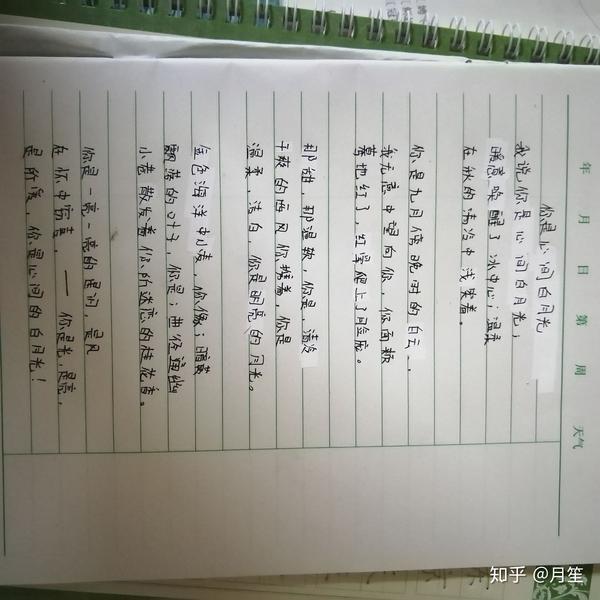 年 月 日 第 周 天气
你是心间白月光
我说,你是心间白月光;
暖意唤醒了冰中心;温柔
在秋的清冷中浅染着。
你是九月傍晚时的白云..
我无意中望向你,你面颊
蓦地红了,红晕爬上了脸庞。
那甜,那温软,你是:清冷
的西风你携着,你是
温柔,洁白,你是明亮的月光。
金色海洋中,你像;暗黄
飘落的叶子,你是;曲径通幽
小巷散发着你所迷恋的桂花香。
你是一亮一亮的星,是风
在你中窃喜,——你是光,是亮,
是所爱,你是心间的白月光!
知乎 @月笙